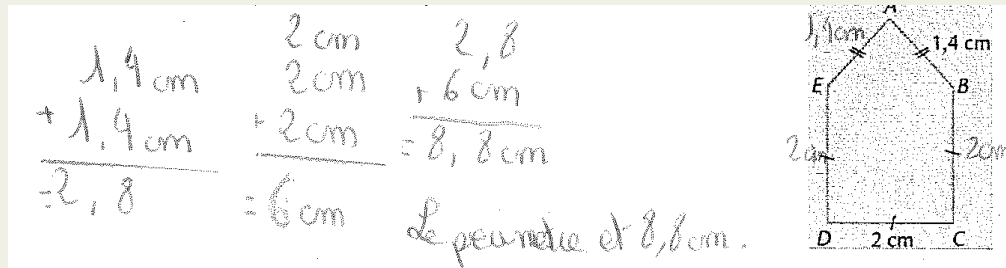 1,4 cm
+ 1,4 cm
= 2,8
2 cm
2 cm
+ 2 cm
= 6 cm
2,8
+ 6 cm
= 8,8 cm
Le périmètre et 8,8 cm.
A
1,4 cm
1,4 cm
E
B
2 cm
2 cm
D
2 cm
C